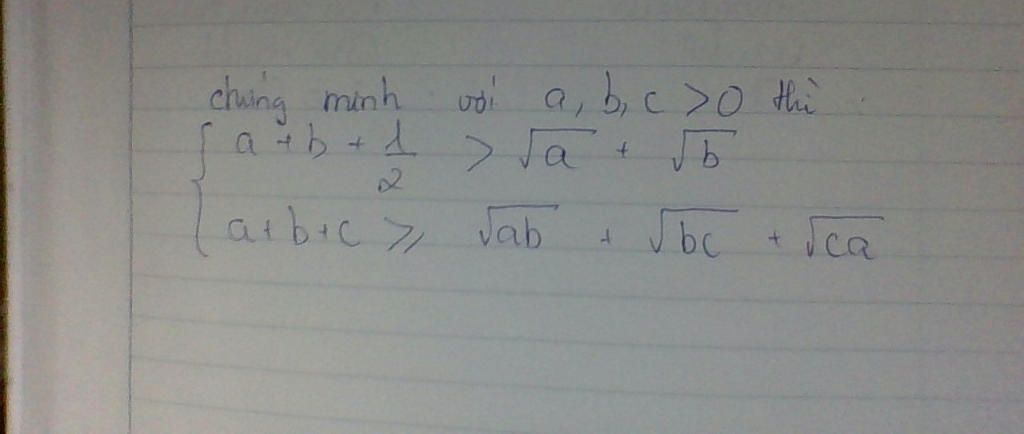 chứng minh với a, b, c > 0 thì
a + b + 1/2 > √a + √b
a + b + c ⩾ √ab + √bc + √ca